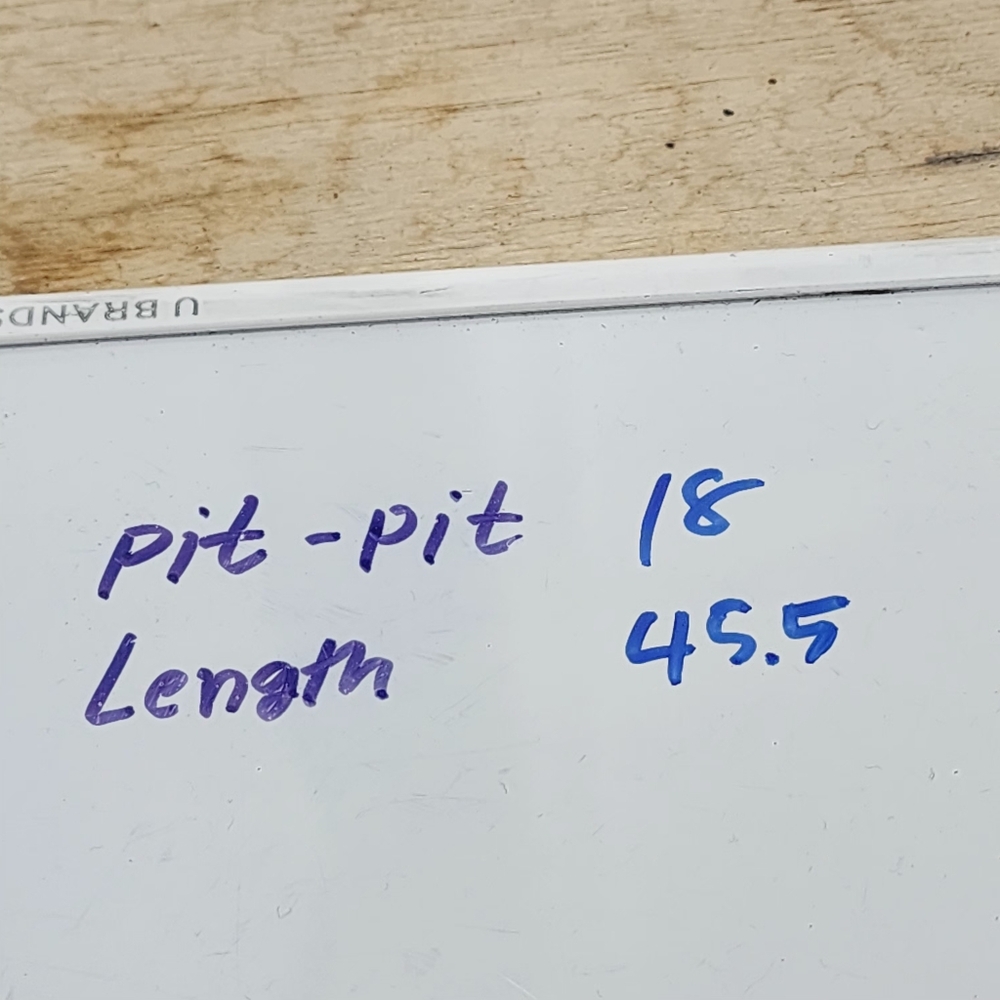 U BRANDS
pit - pit 18
Length 45.5